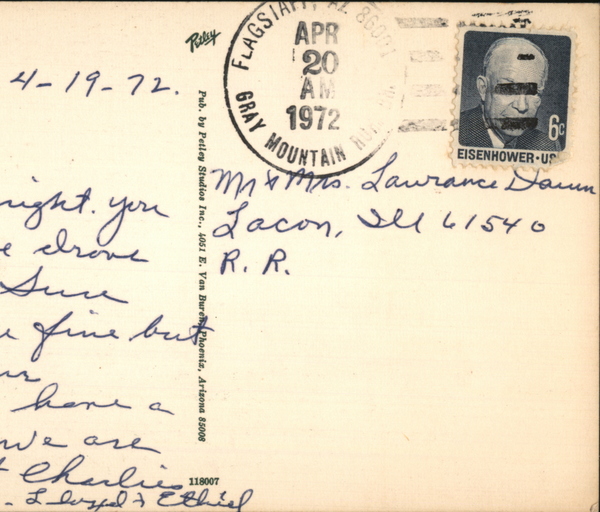 Petley
FLAGSTAFF, AZ 86001
APR
20
AM
1972
GRAY MOUNTAIN
6c
EISENHOWER·US
4-19-72.
night. you
drove
Sure
fine but
have a
we are
Charlies
Lloyd & Ethel
Mr & Mrs. Lawrance
Lacon, Ill 61540
R. R.
Pub. by Petley Studios Inc., 4051 E. Van Buren, Phoenix, Arizona 85008
118007